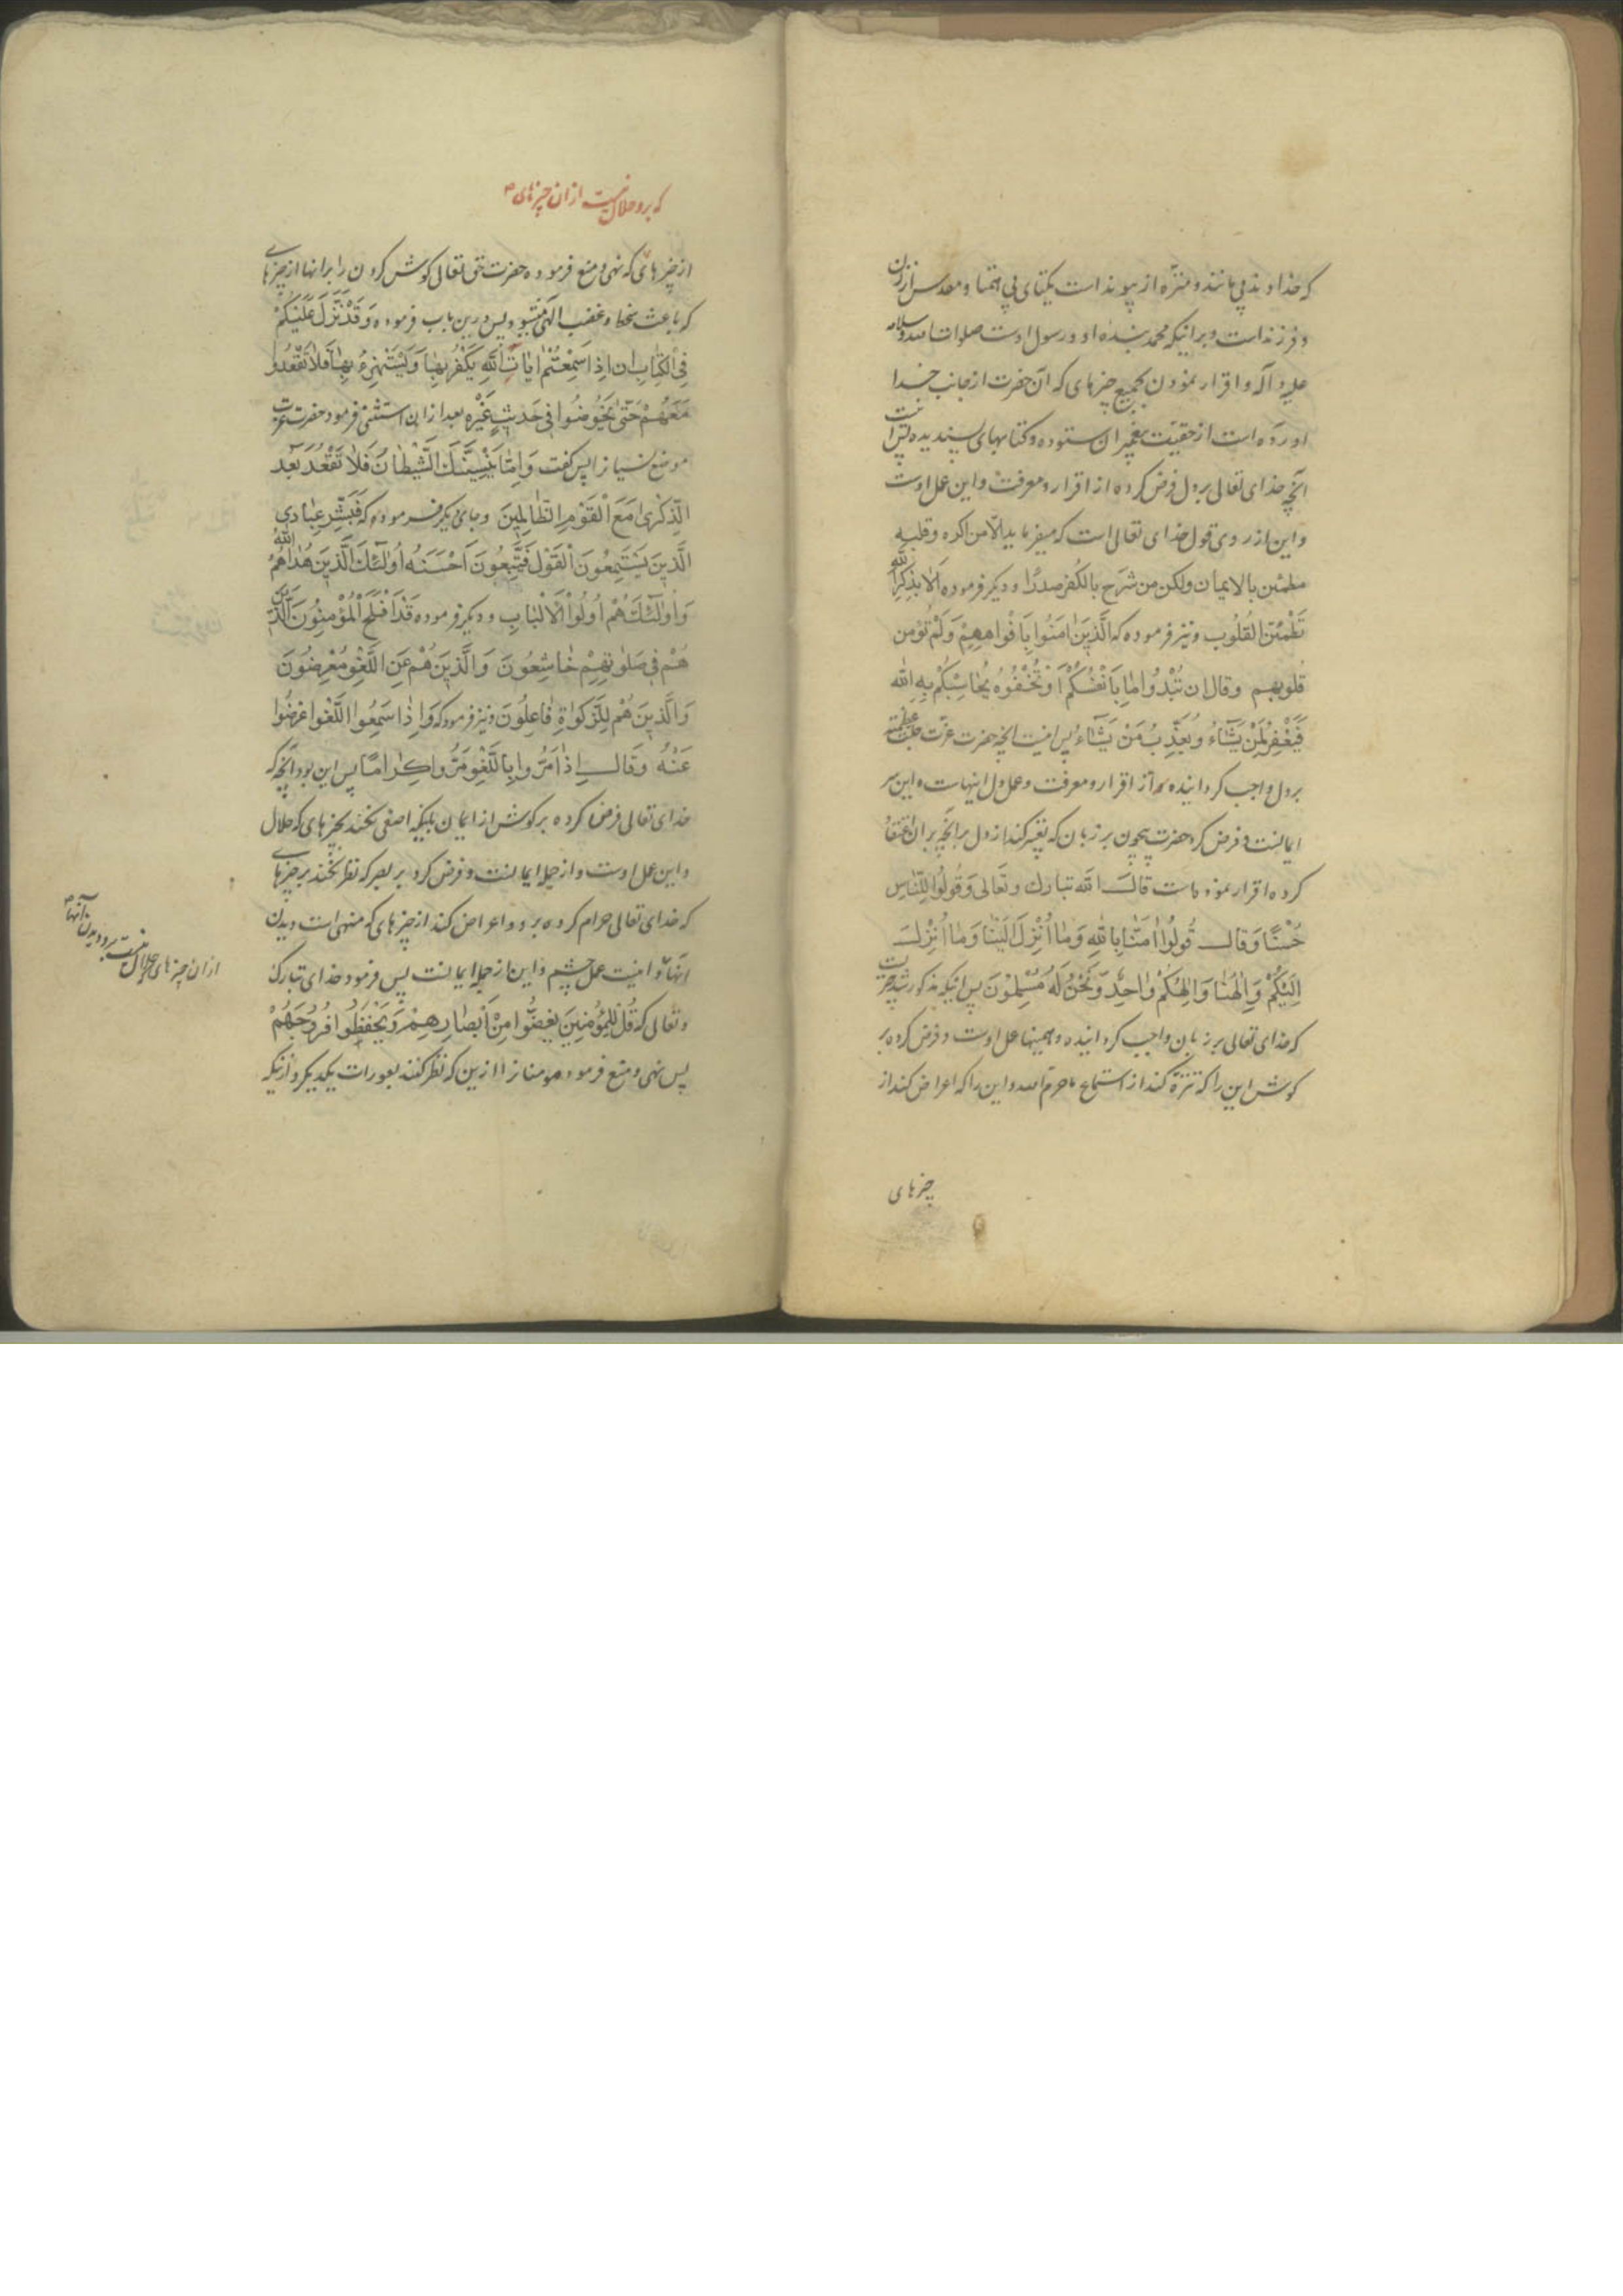 که خداوند بی مانند و منزه از پیوند است یکتای بی همتا و مقدس از زن
و فرزند است و برانیکه محمد بنده او و رسول اوست صلوات الله و سلامه
علیه و آله و اقرار نمودن بجمیع چیزهای که آن حضرت از جانب خدا
آورده است از حقیّت پیغمبران ستوده و کتابهای پسندیده پس اینست
آنچه خدای تعالی بر دل فرض کرده از اقرار و معرفت و این عمل اوست
و این از روی قول خدای تعالی است که میفرماید الّا من اکره و قلبه
مطمئن بالایمان ولکن من شرح بالکفر صدرًا و دیگر فرموده اَلا بذِکرِ الله
تَطْمَئن القلُوب و نیز فرموده که الَّذینَ اٰمَنُوا بِاَفْواهِهِمْ وَلَمْ تؤمن
قُلوبهم وقال ان تُبْدُوا مٰا بِاَنْفُسِکُمْ اَوْتُخْفُوُه یُحٰاسِبْکُمْ بِهِ الله
فَیَغْفِرُ لِمَنْ یَشَآءُ وَیُعَذِّبُ مَنْ یَشَآءُ پس اینست آنچه حضرت عزّت جلّت عظمته
بر دل واجب گردانیده از اقرار و معرفت و عمل دل اینهاست و این سر
ایمانست و فرض کرد حضرت بیچون بر زبان که تعبیر کند از دل بر آنچه بران اعتقاد
کرده و اقرار نموده است قالَ الله تبارک وتعالی وَقُولُوا لِلنّٰاسِ
حُسْنًا وَقال قُولُوا اٰمَنّٰا بِاللهِ وَمٰا اُنْزِلَ اِلَیْنٰا وَمٰا اُنْزِلَ
اِلَیْکُمْ وَاِلٰهُنٰا وَاِلٰهُکُمْ وٰاحِدٌ وَنَحْنُ لَهُ مُسْلِمُونَ پس آنیکه مذکور شد چیزیست
که خدای تعالی بر زبان واجب گردانیده و همینها عمل اوست و فرض کرده بر
گوش این را که تنزّه کند از استماع ما حرّم الله و این را که اعراض کند از
چیزهای
که برو حلال نیست از ان چیزهای
از چیزهای که نهی و منع فرموده حضرت حق تعالی گوش کردن را برانها از چیزهای
که باعث سخط و غضب الهی میشود پس درین باب فرموده وَقَدْ نَزَّلَ عَلَیْکُمْ
فِی الکِتٰابِ ان اِذٰا سَمِعْتُمْ اٰیٰاتِ اللهِ یَکْفُرُ بِهٰا وَیَسْتَهْزِءُ بِهٰا فَلاٰ تَقْعُدُوا
مَعَهُمْ حَتّٰی یَخُوضُوا فی حَدیثٍ غَیْرِهِ بعد ازان استثنی فرمود حضرت عزت
موضع نسیانرا پس گفت وَاِمّٰا یُنْسِیَنَّکَ الشَّیْطٰانُ فَلاٰ تَقْعُدْ بَعْدَ
الذِّکْرٰی مَعَ الْقَوْمِ الظّٰالِمینَ و جای دیگر فرموده که فَبَشِّرْ عِبٰادِی
الَّذینَ یَسْتَمِعُونَ الْقَوْلَ فَیَتَّبِعُونَ اَحْسَنَهُ اُولٰئِکَ الَّذینَ هَدٰاهُمُ اللهُ
وَاُولٰئِکَ هُمْ اُولُوا الْاَلْبٰابِ و دیگر فرموده قَدْ اَفْلَحَ الْمُؤْمِنُونَ الَّذینَ
هُمْ فی صَلٰوتِهِمْ خٰاشِعُونَ وَالَّذینَ هُمْ عَنِ اللَّغْوِ مُعْرِضُونَ
وَالَّذینَ هُمْ لِلزَّکوٰاةِ فٰاعِلُونَ و نیز فرمود که وَاِذٰا سَمِعُوا اللَّغْوَ اَعْرَضُوا
عَنْهُ وَقَال اِذٰا مَرُّوا بِاللَّغْوِ مَرُّوا کِرٰامًا پس این بود آنچه که
خدای تعالی فرض کرده بر گوش از ایمان بانیکه اصغی نکند بچیزهای که حلال
و این عمل اوست و از جمله ایمانست و فرض کرد بر بصر که نظر نکند بر چیزهای
که خدای تعالی حرام کرده برو و اعراض کند از چیزهای که منهی است دیدن
آنها و اینست عمل چشم و این از جمله ایمانست پس فرمود خدای تبارک
و تعالی که قُلْ لِلْمُؤْمِنینَ یَغُضُّوا مِنْ اَبْصٰارِهِمْ وَیَحْفَظُوا فُرُوجَهُمْ
پس نهی و منع فرمود مومنانرا ازین که نظر کنند بعورات یکدیگر و ازنیکه
ازان چیزهای که حلال نیست برو دیدن آنها